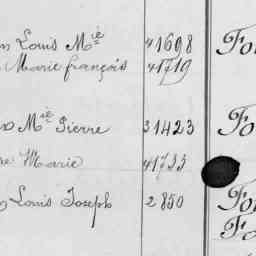 Louis Mie 41698 Fo
Marie françois 41719
Mie Pierre 31423 Fo
re Marie 41733
Louis Joseph 2850 Fo
Fo